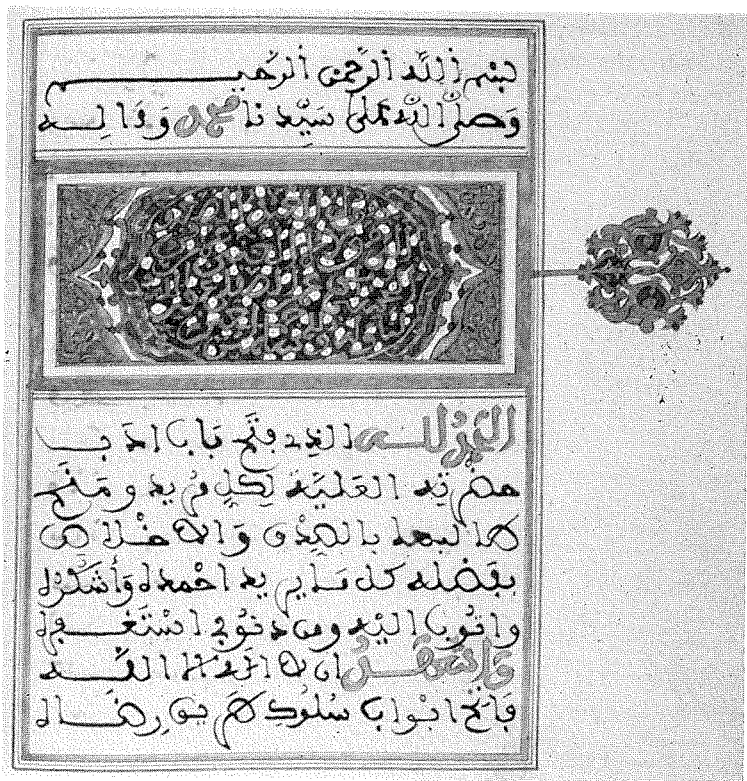 بسم الله الرحمن الرحيم
وصلى الله على سيدنا محمد وءاله
الحمد لله الذي فتح باب اداب
حضرته العلية لكل مريد ومنح
طالبها بالصدق والاخلاص
بفضله كل ما يريد احمده وأشكره
واتوب اليه ومن ذنوبي استغفره
وأشهد ان لا اله الا الله
فاتح ابواب سلوك طريق رضاه